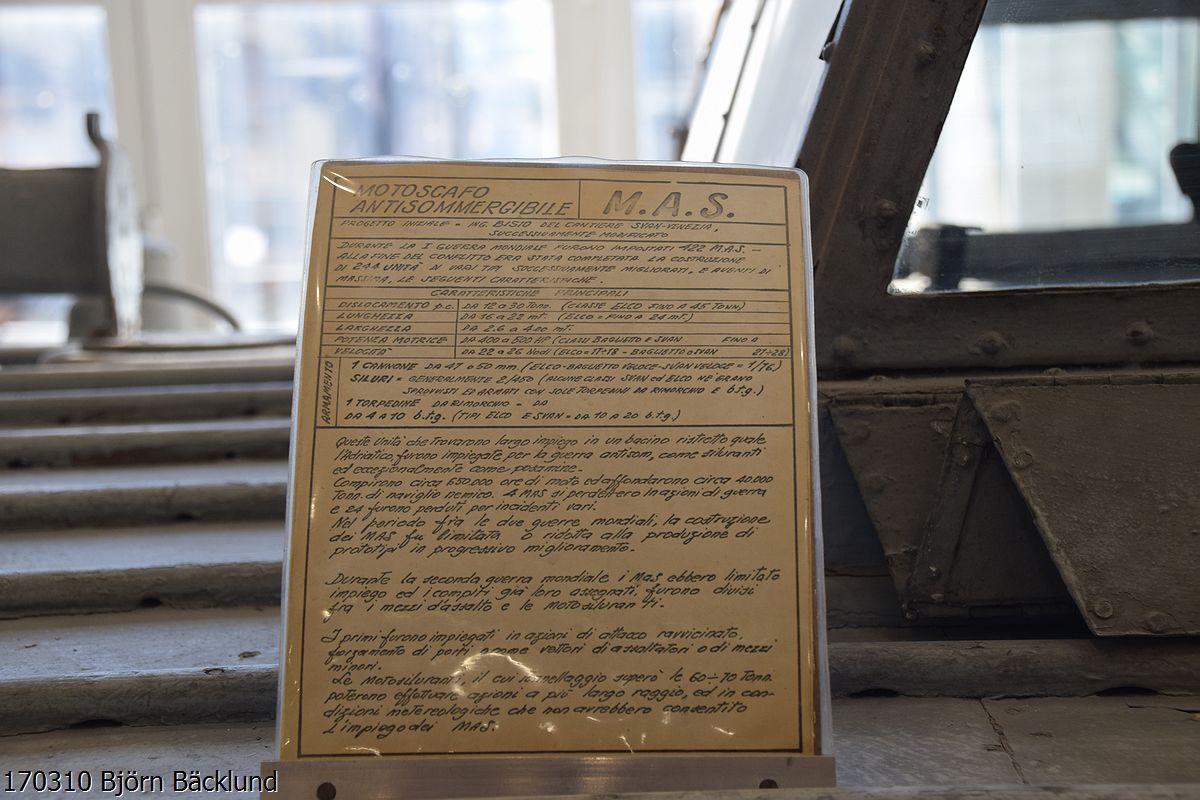 MOTOSCAFO
ANTISOMMERGIBILE
M.A.S.
PROGETTO INIZIALE = ING. BISIO DEL CANTIERE SVAN-VENEZIA,
SUCCESSIVAMENTE MODIFICATO
DURANTE LA I GUERRA MONDIALE FURONO IMPOSTATI 422 M.A.S. —
ALLA FINE DEL CONFLITTO ERA STATA COMPLETATA LA COSTRUZIONE
DI 244 UNITÀ DI VARI TIPI SUCCESSIVAMENTE MIGLIORATI, E AVENTI DI
MASSIMA, LE SEGUENTI CARATTERISTICHE.
CARATTERISTICHE PRINCIPALI
DISLOCAMENTO p.c. DA 12 a 30 Tonn. (CLASSE ELCO FINO A 45 TONN)
LUNGHEZZA DA 16 a 22 mT. (ELCO = FINO A 24 mT.)
LARGHEZZA DA 2.6 a 4.20 mT.
POTENZA MOTRICE DA 400 a 500 HP (CLASSI BAGLIETTO E SVAN FINO A
VELOCITA' DA 22 a 26 Nodi (ELCO = 17-18 - BAGLIETTO e SVAN 27-28)
ARMAMENTO
1 CANNONE DA 47 o 50 mm. (ELCO-BAGLIETTO VELOCE-SVAN VELOCE = 1/76)
SILURI = GENERALMENTE 2/450 (ALCUNE CLASSI SVAN ed ELCO NE ERANO
SPROVVISTI ED ARMATI CON SOLE TORPEDINI DA RIMORCHIO E b.t.g.)
1 TORPEDINE DA RIMORCHIO = DA
DA 4 A 10 b.t.g. (TIPI ELCO E SVAN = DA 10 A 20 b.t.g.)
Queste Unità che trovarono largo impiego in un bacino ristretto quale
l'Adriatico, furono impiegate per la guerra antisom, come siluranti
ed eccezionalmente come posamine.
Compirono circa 650.000 ore di moto ed affondarono circa 40.000
Tonn. di naviglio nemico. 4 MAS si perdettero in azioni di guerra
e 24 furono perduti per incidenti vari.
Nel periodo fra le due guerre mondiali, la costruzione
dei MAS fu limitata o ridotta alla produzione di
prototipi in progressivo miglioramento.
Durante la seconda guerra mondiale i Mas ebbero limitato
impiego ed i compiti già loro assegnati, furono divisi
fra i mezzi d'assalto e le motosiluranti.
I primi furono impiegati in azioni di attacco ravvicinato,
forzamento di porti o come vettori di assaltatori o di mezzi
minori.
Le motosiluranti, il cui tonnellaggio superò le 60÷70 Tonn.
poterono effettuare azioni a più largo raggio, ed in con-
dizioni metereologiche che non avrebbero consentito
l'impiego dei MAS.
170310 Björn Bäcklund